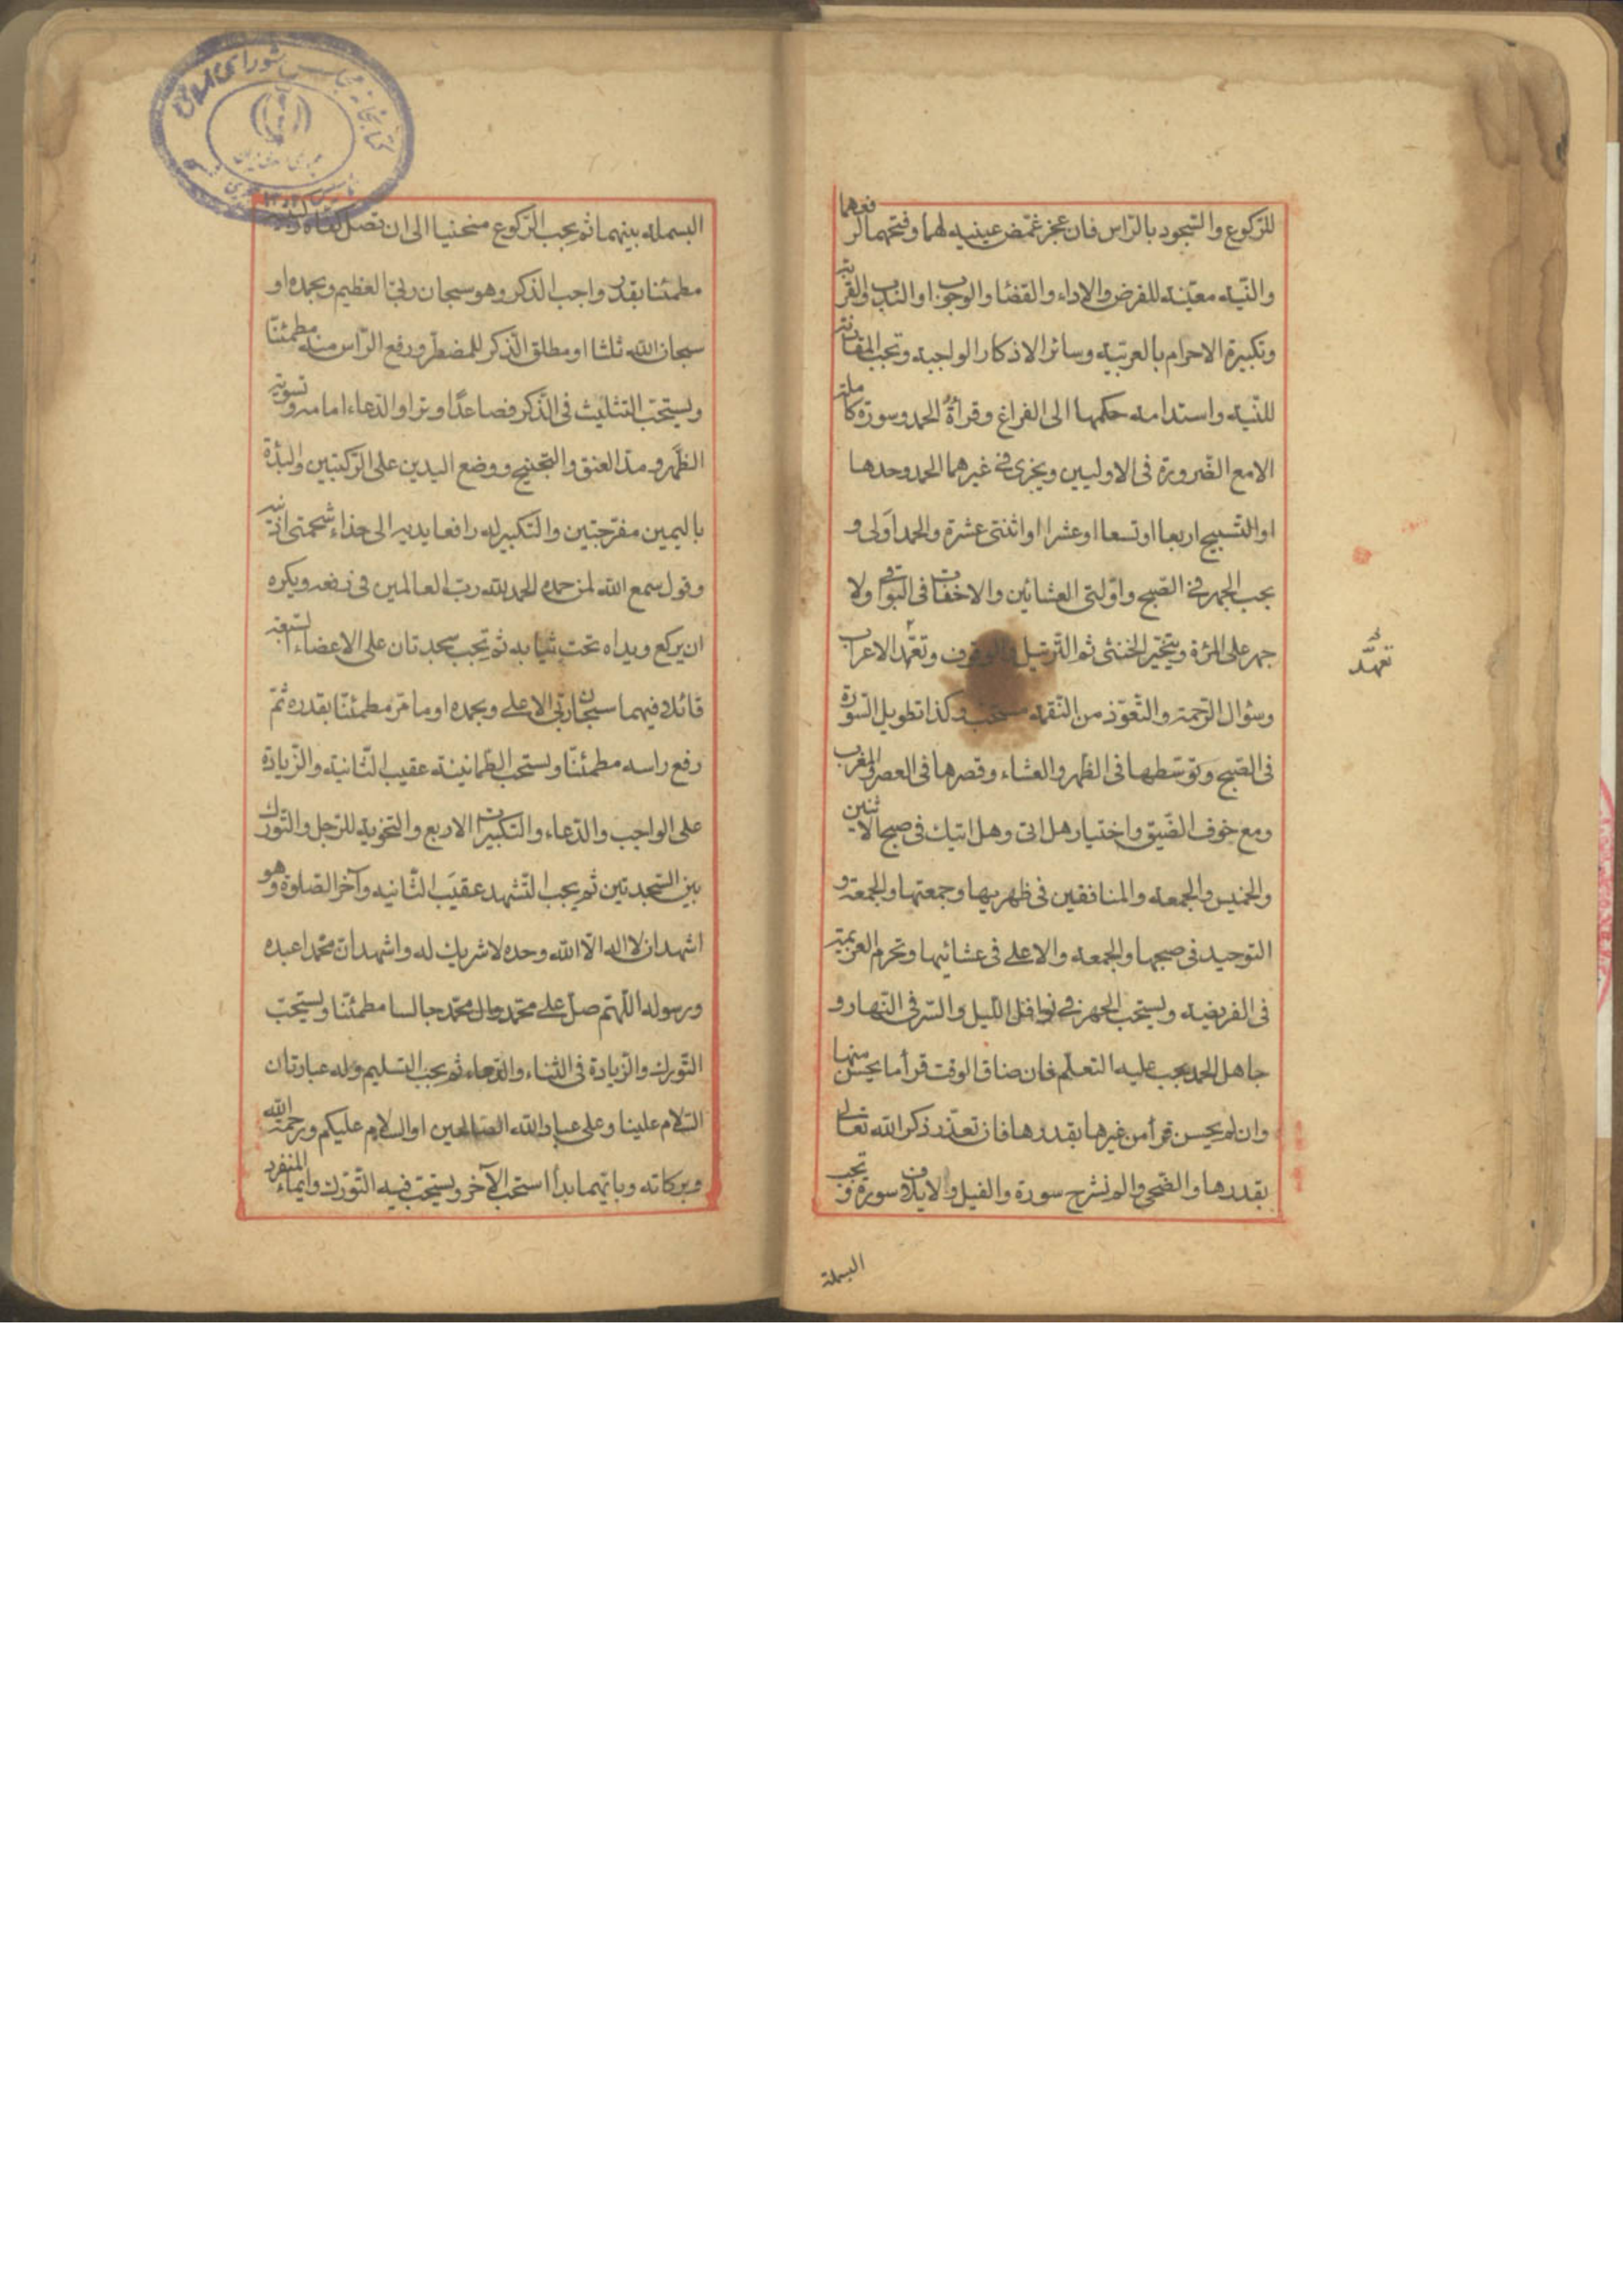 للرّكوع والسّجود بالرّاس فان عجز غمّض عينيه لهما وفتحهما لرفعهما
والنّية معيّنة للفرض والاداء والقضاء والوجوب او النّدب والقربة
وتكبيرة الاحرام بالعربيّة وسائر الاذكار الواجبة وتجب المقارنة
للنّية واستدامة حكمها الى الفراغ وقرأة الحمد وسورة كاملة
الا مع الضّرورة فى الاوليين ويجزى فى غيرهما الحمد وحدها
او التّسبيح اربعا او تسعا او عشرا او اثنتى عشرة والحمد اولى و
يجب الجهر فى الصّبح واوّلتى العشائين والاخفات فى البواقى ولا
جهر على المرئة ويتخيّر الخنثى ثم التّرتيل والوقوف وتعهّد الاعراب
تعهّد
وسؤال الرّحمة والتّعوّذ من النّقمة مستحبّ وكذا تطويل السّورة
فى الصّبح وتوسّطها فى الظّهر والعشاء وقصرها فى العصر والمغرب
ومع خوف الضّيق واختيار هل اتى وهل اتيك فى صبح الاثنين
والخميس والجمعة والمنافقين فى ظهريها وجمعتها والجمعة و
التوحيد فى صبحها والجمعة والاعلى فى عشائيها وتحرم العزيمة
فى الفريضة ويستحب الجهر فى نوافل اللّيل والسّر فى النّهار و
جاهل الحمد يجب عليه التعلّم فان ضاق الوقت قرأ ما يحسن منها
وان لم يحسن قرأ من غيرها بقدرها فان تعذّر ذكر الله تعالى
بقدرها والضّحى والم نشرح سورة والفيل ولايلاف سورة وتجب
البسملة
البسملة بينهما ثم يجب الرّكوع منحنيا الى ان تصل كفاه
مطمئنا بقدر واجب الذكر وهو سبحان ربّى العظيم وبحمده او
سبحان الله ثلثا او مطلق الذّكر للمضطرّ ورفع الرّاس منه مطمئنّا
ويستحبّ التثليث فى الذّكر فصاعدًا وترا والدّعاء امامه وتسوية
الظّهر ومدّ العنق والتجنيح ووضع اليدين على الرّكبتين والبدئة
باليمين مفرّجتين والتكبير له رافعا يديه الى حذاء شحمتى اذنيه
وقول سمع الله لمن حمده الحمد لله ربّ العالمين فى رفعه ويكره
ان يركع ويداه تحت ثيابه ثم تجب سجدتان على الاعضاء السّبعة
قائلا فيهما سبحان ربّى الاعلى وبحمده او ما مرّ مطمئنّا بقدره ثمّ
رفع راسه مطمئنّا ويستحب الطّمانينة عقيب الثّانية والزّيادة
على الواجب والدّعاء والتكبيرات الاربع والتخوية للرّجل والتّورّك
بين السّجدتين ثم يجب التّشهد عقيَب الثّانية وآخر الصّلوة وهو
اشهد ان لا اله الّا الله وحده لا شريك له واشهد انّ محمّدا عبده
ورسوله اللّهم صلّ على محمّد وال محمّد جالسا مطمئنّا ويستحبّ
التّورك والزّيادة فى الثناء والدّعاء ثم يجب التسليم وله عبارتان
السّلام علينا وعلى عباد الله الصّالحين او السّلام عليكم ورحمة الله
وبركاته وبايّهما بدأ استحب الآخر ويستحبّ فيه التّورّك وايماء المنفرد